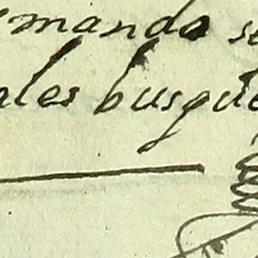 mando se
ales busque